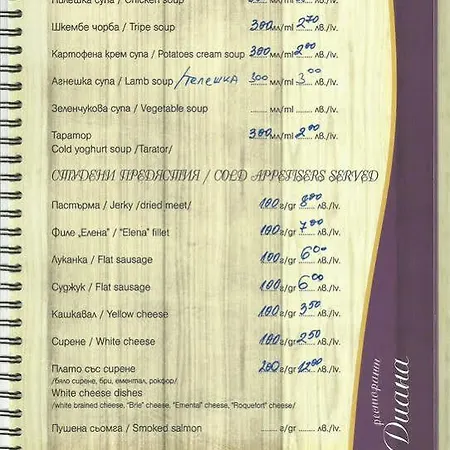 Пилешка супа / Chicken soup мл/ml лв./lv.
Шкембе чорба / Tripe soup 300 мл/ml 2 70 лв./lv.
Картофена крем супа / Potatoes cream soup 300 мл/ml 2 00 лв./lv.
Агнешка супа / Lamb soup /телешка 300 мл/ml 3 00 лв./lv.
Зеленчукова супа / Vegetable soup ........ мл/ml ........ лв./lv.
Таратор 300 мл/ml 2 00 лв./lv.
Cold yoghurt soup /Tarator/
СТУДЕНИ ПРЕДЯСТИЯ / COLD APPETISERS SERVED
Пастърма / Jerky /dried meet/ 100 г/gr 8 00 лв./lv.
Филе „Елена" / "Elena" fillet 100 г/gr 7 00 лв./lv.
Луканка / Flat sausage 100 г/gr 6 00 лв./lv.
Суджук / Flat sausage 100 г/gr 6 00 лв./lv.
Кашкавал / Yellow cheese 100 г/gr 3 50 лв./lv.
Сирене / White cheese 100 г/gr 2 50 лв./lv.
Плато със сирене 200 г/gr 12 00 лв./lv.
/бяло сирене, бри, ементал, рокфор/
White cheese dishes
/white brained cheese, "Brie" cheese, "Emental" cheese, "Roquefort" cheese/
Пушена сьомга / Smoked salmon ........ г/gr ........ лв./lv.
ресторант
Диана